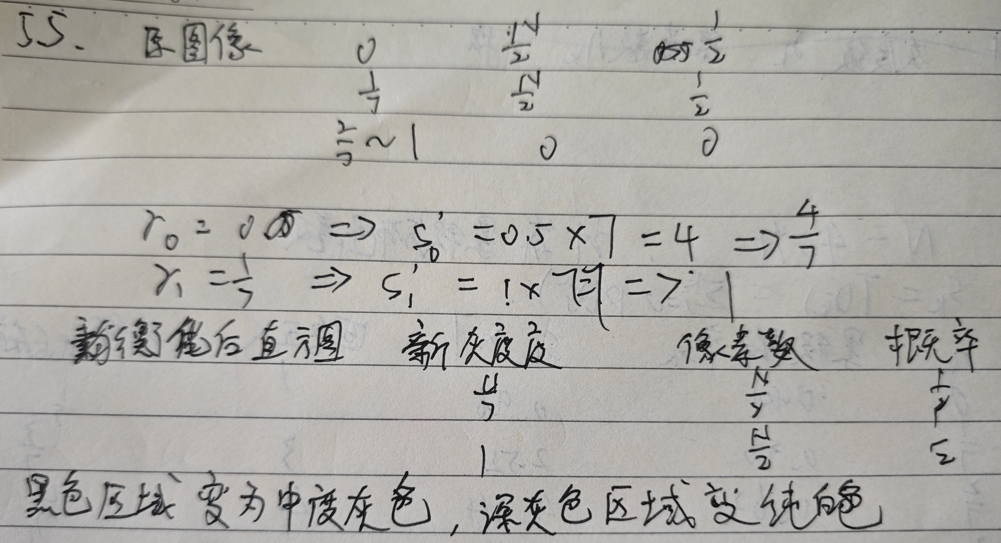 5.5. 原图像 0 N/2 1/2
1/7 N/2 1/2
2/7 ~ 1 0 0
r₀ = 0 ⇒ s₀' = 0.5 × 7 = 4 ⇒ 4/7
r₁ = 1/7 ⇒ s₁' = 1 × 7 = 7 ⇒ 1
衡化后直方图 新灰度 像素数 概率
4/7 N/2 1/2
1 N/2 1/2
黑色区域变为中度灰色,深灰色区域变纯白色